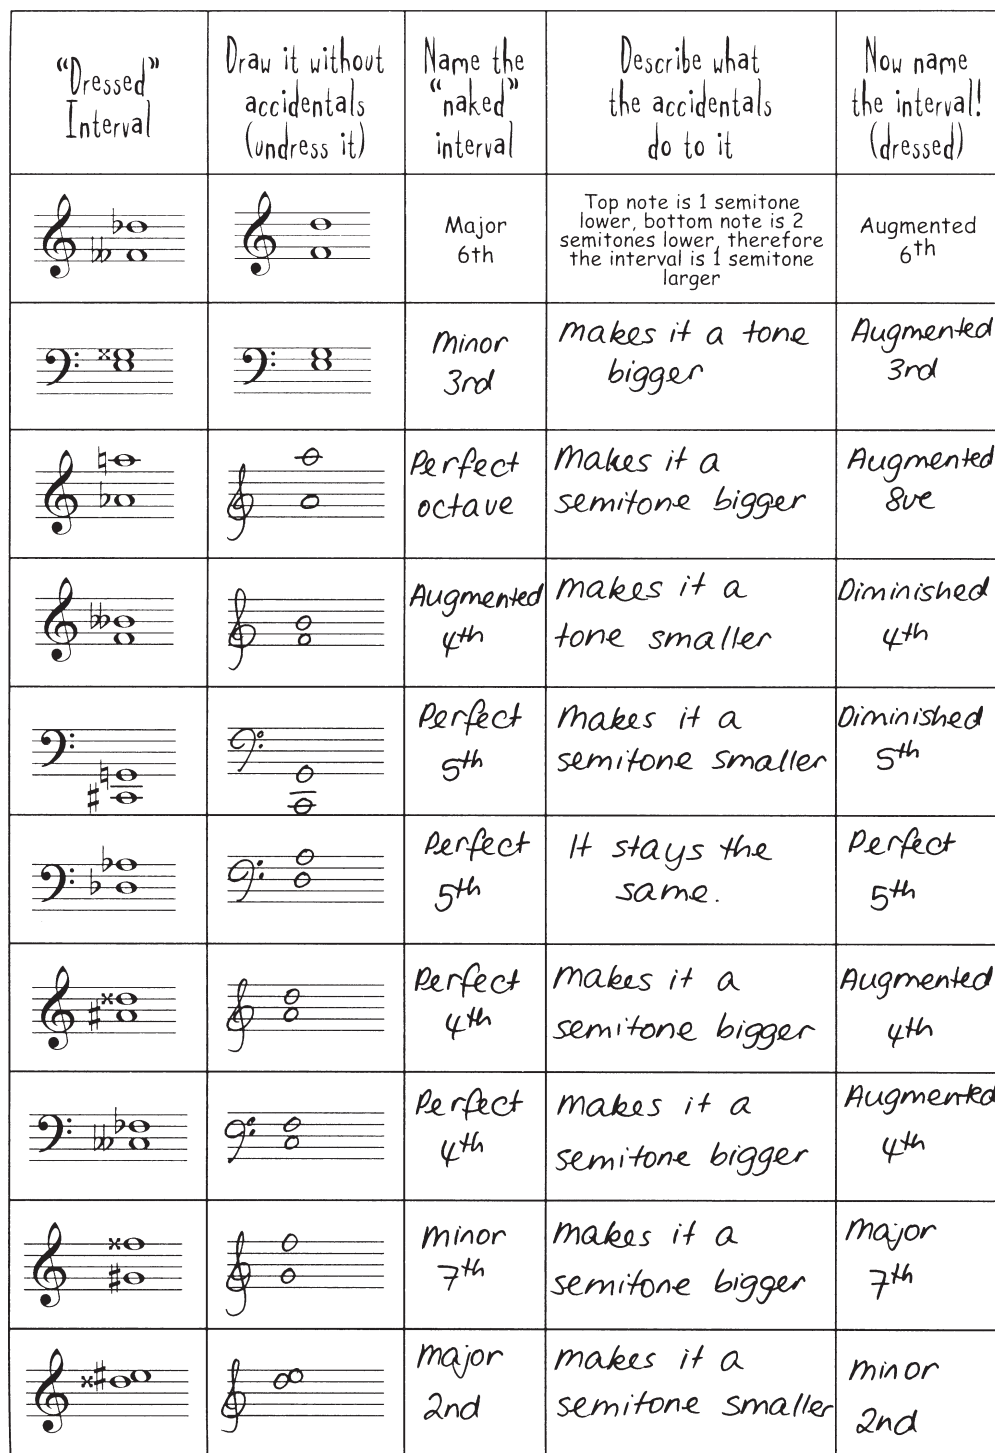 “Dressed”
Interval
Draw it without
accidentals
(undress it)
Name the
“naked”
interval
Describe what
the accidentals
do to it
Now name
the interval!
(dressed)
Major
6th
Top note is 1 semitone
lower, bottom note is 2
semitones lower, therefore
the interval is 1 semitone
larger
Augmented
6th
Minor
3rd
Makes it a tone
bigger
Augmented
3rd
Perfect
octave
Makes it a
semitone bigger
Augmented
8ve
Augmented
4th
Makes it a
tone smaller
Diminished
4th
Perfect
5th
Makes it a
semitone smaller
Diminished
5th
Perfect
5th
It stays the
same.
Perfect
5th
Perfect
4th
Makes it a
semitone bigger
Augmented
4th
Perfect
4th
Makes it a
semitone bigger
Augmented
4th
Minor
7th
Makes it a
semitone bigger
Major
7th
Major
2nd
Makes it a
semitone smaller
Minor
2nd